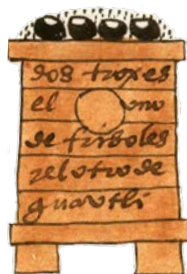 dos troxes
el uno
de friboles
yel otro de
guautli